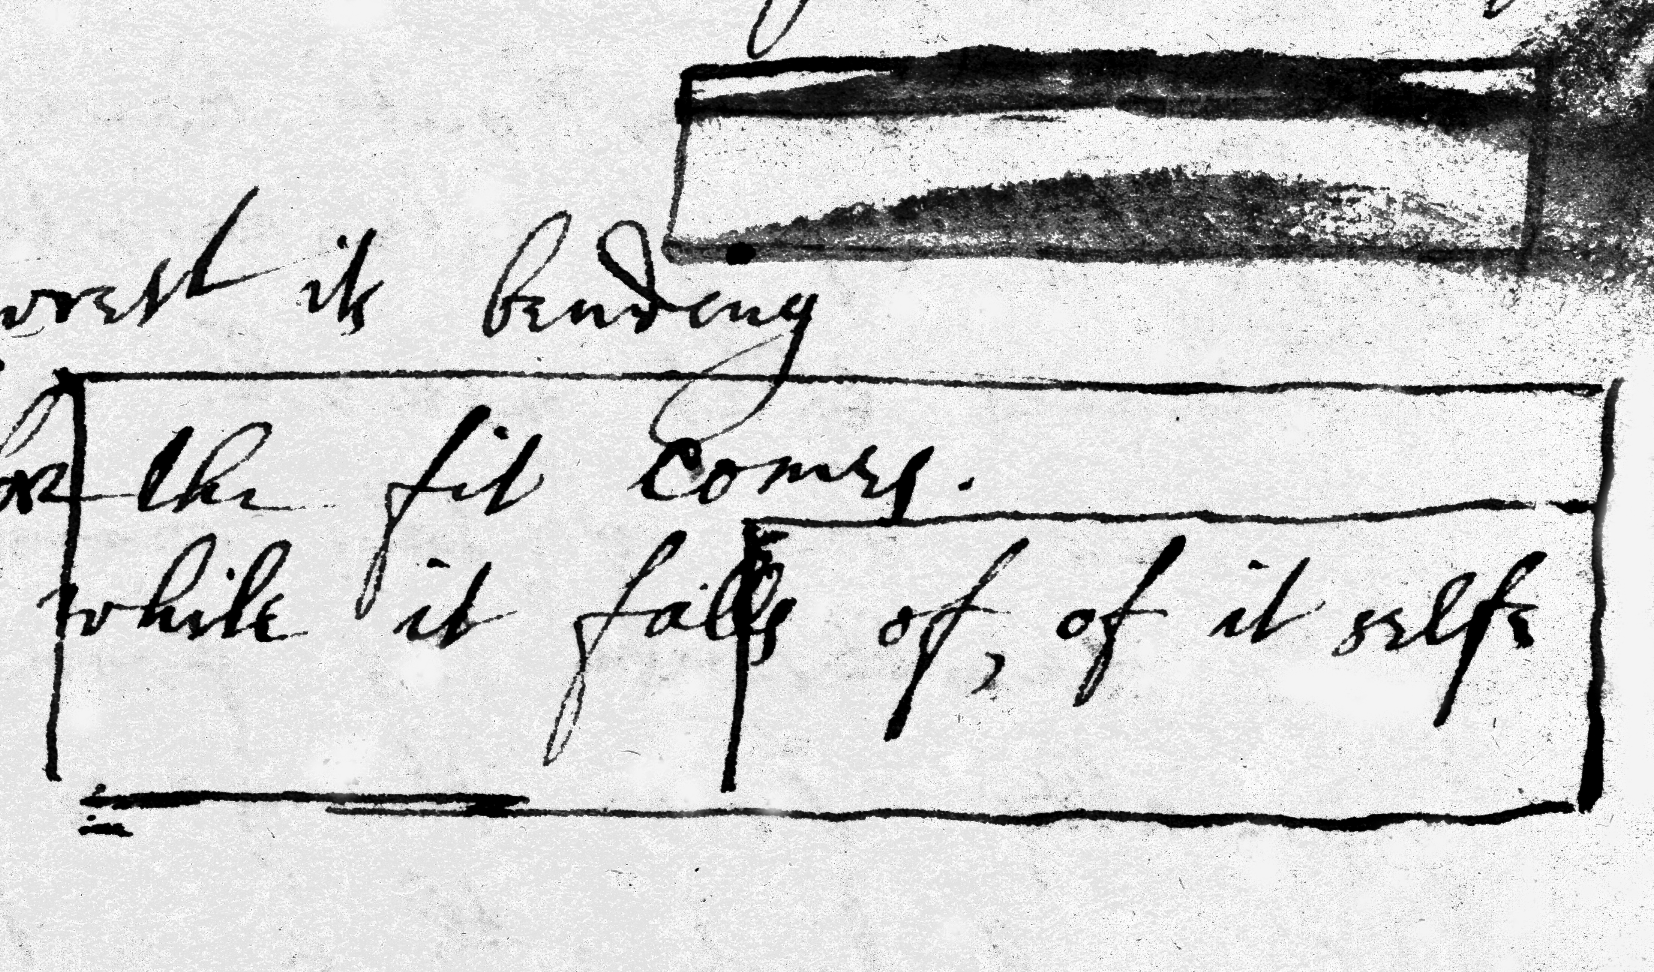 wrest it bending
the fit comes.
while it falls of, of it selfe